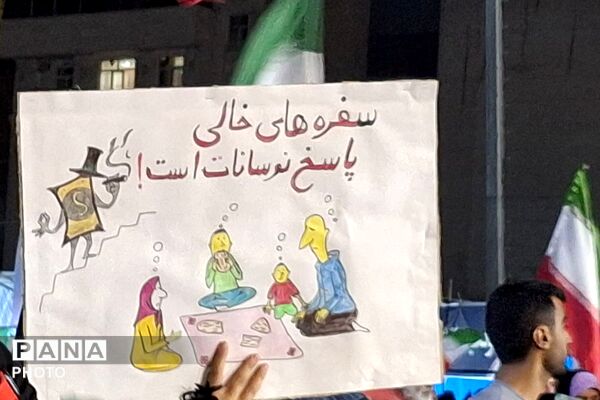 سفره های خالی
پاسخ نوسانات است!
$
PANA
PHOTO